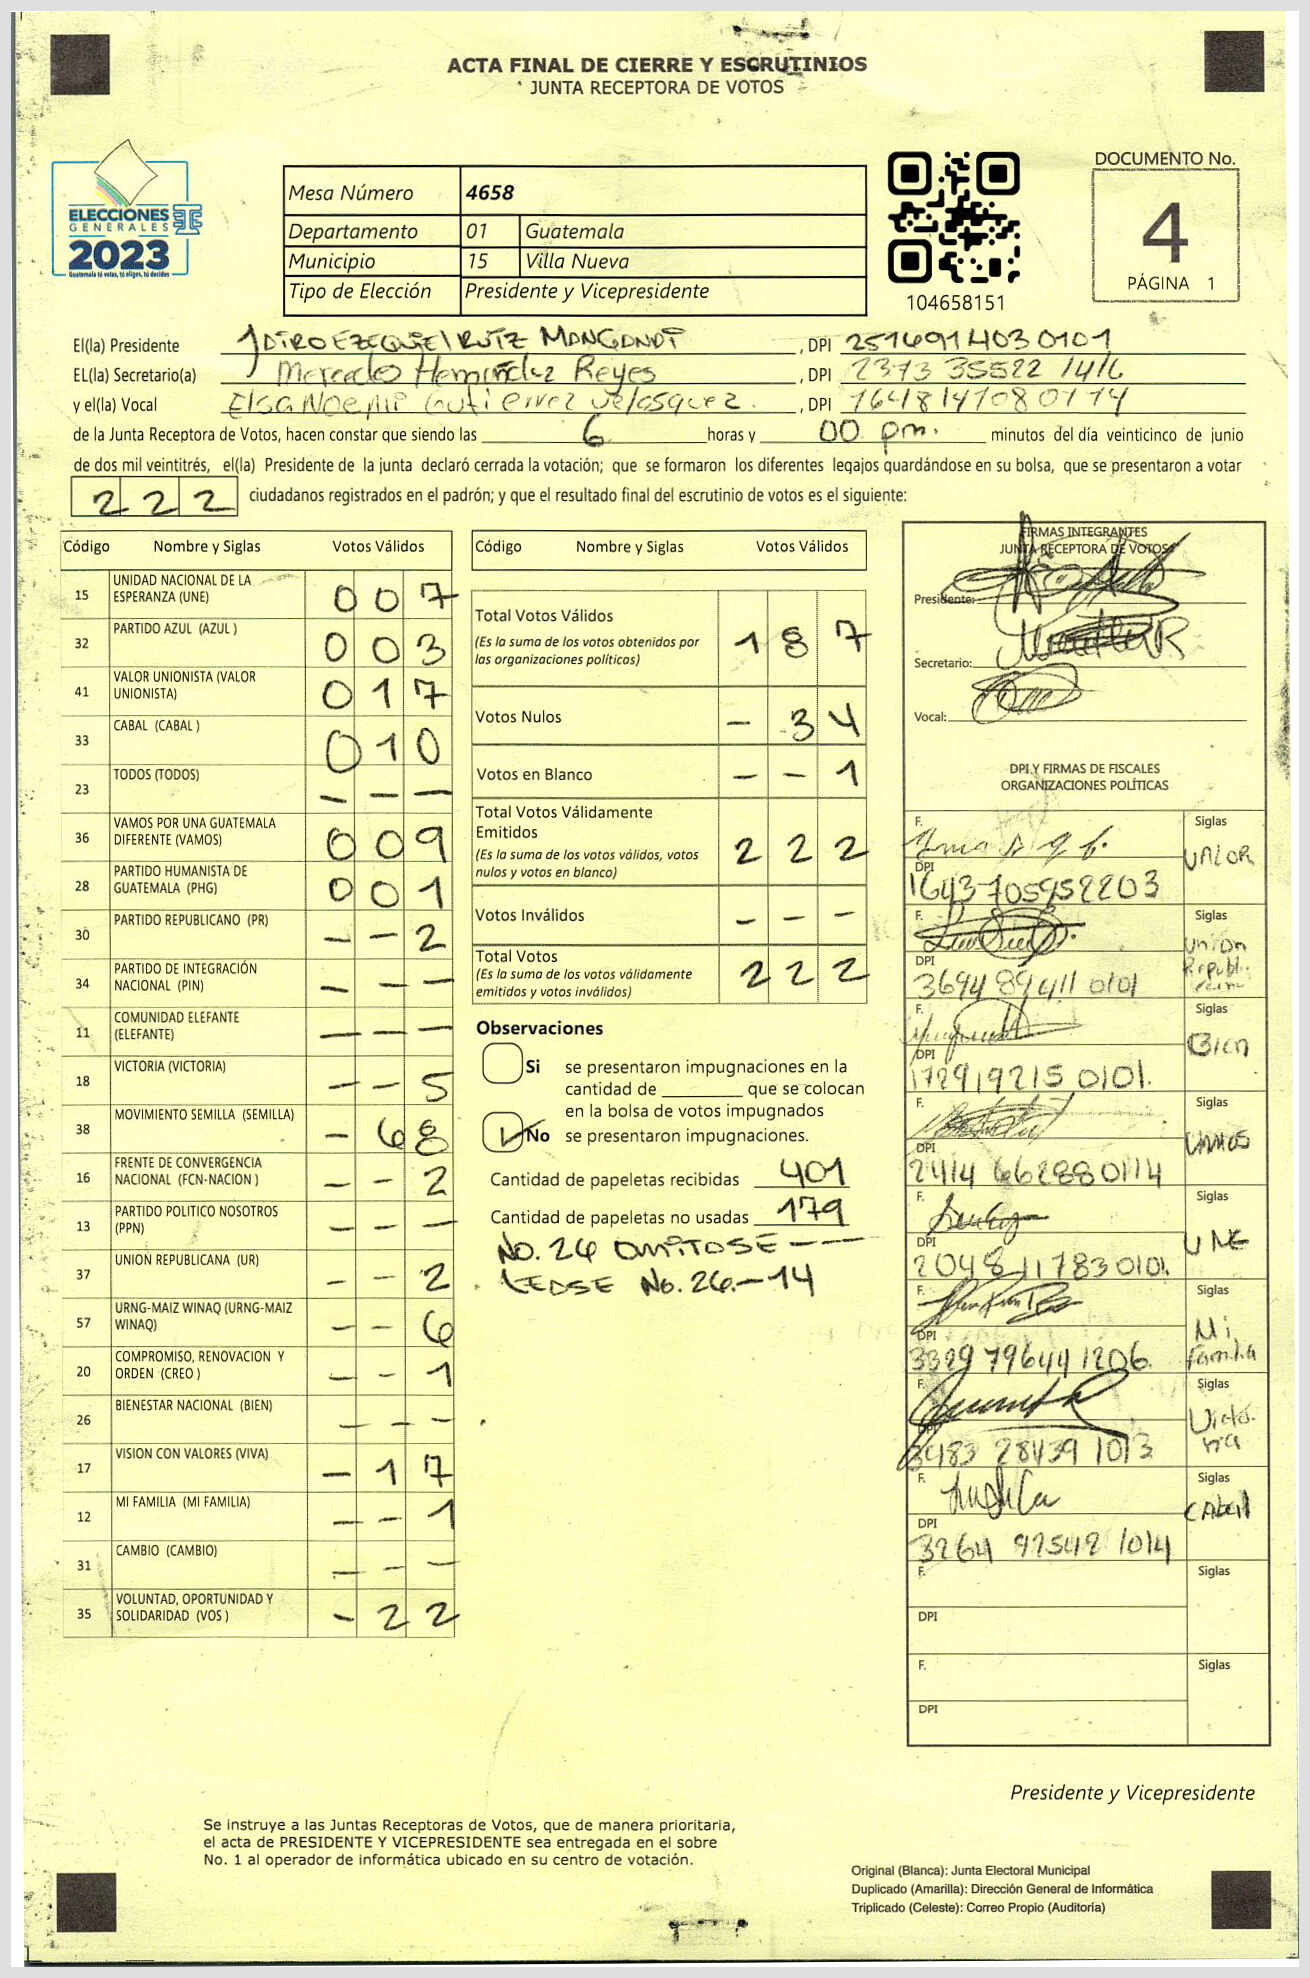 ACTA FINAL DE CIERRE Y ESCRUTINIOS
JUNTA RECEPTORA DE VOTOS
ELECCIONES
GENERALES
2023
Guatemala tú votas, tú eliges, tú decides
Mesa Número 4658
Departamento 01 Guatemala
Municipio 15 Villa Nueva
Tipo de Elección Presidente y Vicepresidente
104658151
DOCUMENTO No.
4
PÁGINA 1
El(la) Presidente , DPI 2516914030101
EL(la) Secretario(a) Mercedes Hernández Reyes , DPI 2373 35522 1416
y el(la) Vocal Elsa Noemi Gutierrez Velasquez. , DPI 1648147080114
de la Junta Receptora de Votos, hacen constar que siendo las 6 horas y 00 pm. minutos del día veinticinco de junio
de dos mil veintitrés, el(la) Presidente de la junta declaró cerrada la votación; que se formaron los diferentes legajos guardándose en su bolsa, que se presentaron a votar
222 ciudadanos registrados en el padrón; y que el resultado final del escrutinio de votos es el siguiente:
Código Nombre y Siglas Votos Válidos
15 UNIDAD NACIONAL DE LA ESPERANZA (UNE) 007
32 PARTIDO AZUL (AZUL ) 003
41 VALOR UNIONISTA (VALOR UNIONISTA) 017
33 CABAL (CABAL ) 010
23 TODOS (TODOS) - - -
36 VAMOS POR UNA GUATEMALA DIFERENTE (VAMOS) 009
28 PARTIDO HUMANISTA DE GUATEMALA (PHG) 001
30 PARTIDO REPUBLICANO (PR) - - 2
34 PARTIDO DE INTEGRACIÓN NACIONAL (PIN) - - -
11 COMUNIDAD ELEFANTE (ELEFANTE) - - -
18 VICTORIA (VICTORIA) - - 5
38 MOVIMIENTO SEMILLA (SEMILLA) - 68
16 FRENTE DE CONVERGENCIA NACIONAL (FCN-NACION ) - - 2
13 PARTIDO POLITICO NOSOTROS (PPN) - - -
37 UNION REPUBLICANA (UR) - - 2
57 URNG-MAIZ WINAQ (URNG-MAIZ WINAQ) - - 6
20 COMPROMISO, RENOVACION Y ORDEN (CREO ) - - 1
26 BIENESTAR NACIONAL (BIEN) - - -
17 VISION CON VALORES (VIVA) - 17
12 MI FAMILIA (MI FAMILIA) - - 1
31 CAMBIO (CAMBIO) - - -
35 VOLUNTAD, OPORTUNIDAD Y SOLIDARIDAD (VOS ) - 22
Código Nombre y Siglas Votos Válidos
Total Votos Válidos 187
(Es la suma de los votos obtenidos por las organizaciones políticas)
Votos Nulos - 34
Votos en Blanco - - 1
Total Votos Válidamente Emitidos 222
(Es la suma de los votos válidos, votos nulos y votos en blanco)
Votos Inválidos - - -
Total Votos 222
(Es la suma de los votos válidamente emitidos y votos inválidos)
Observaciones
Si se presentaron impugnaciones en la
cantidad de ________ que se colocan
en la bolsa de votos impugnados
No se presentaron impugnaciones.
Cantidad de papeletas recibidas 401
Cantidad de papeletas no usadas 179
No. 26 OMITOSE - - -
LEASE No. 26.-14
FIRMAS INTEGRANTES
JUNTA RECEPTORA DE VOTOS
Presidente:
Secretario:
Vocal:
DPI Y FIRMAS DE FISCALES
ORGANIZACIONES POLÍTICAS
F. Siglas VALOR
DPI 1643705952203
F. Siglas Union Republicana
DPI 3694 89411 0101
F. Siglas Bien
DPI 172919215 0101.
F. Siglas VAMOS
DPI 2414 662880114
F. Siglas UNE
DPI 2048 11783 0101.
F. Siglas Mi familia
DPI 3329 79644 1206.
F. Siglas Victoria
DPI 3483 28439 1013
F. Siglas CABAL
DPI 3264 92542 1014
F. Siglas
DPI
F. Siglas
DPI
Presidente y Vicepresidente
Se instruye a las Juntas Receptoras de Votos, que de manera prioritaria,
el acta de PRESIDENTE Y VICEPRESIDENTE sea entregada en el sobre
No. 1 al operador de informática ubicado en su centro de votación.
Original (Blanca): Junta Electoral Municipal
Duplicado (Amarilla): Dirección General de Informática
Triplicado (Celeste): Correo Propio (Auditoría)